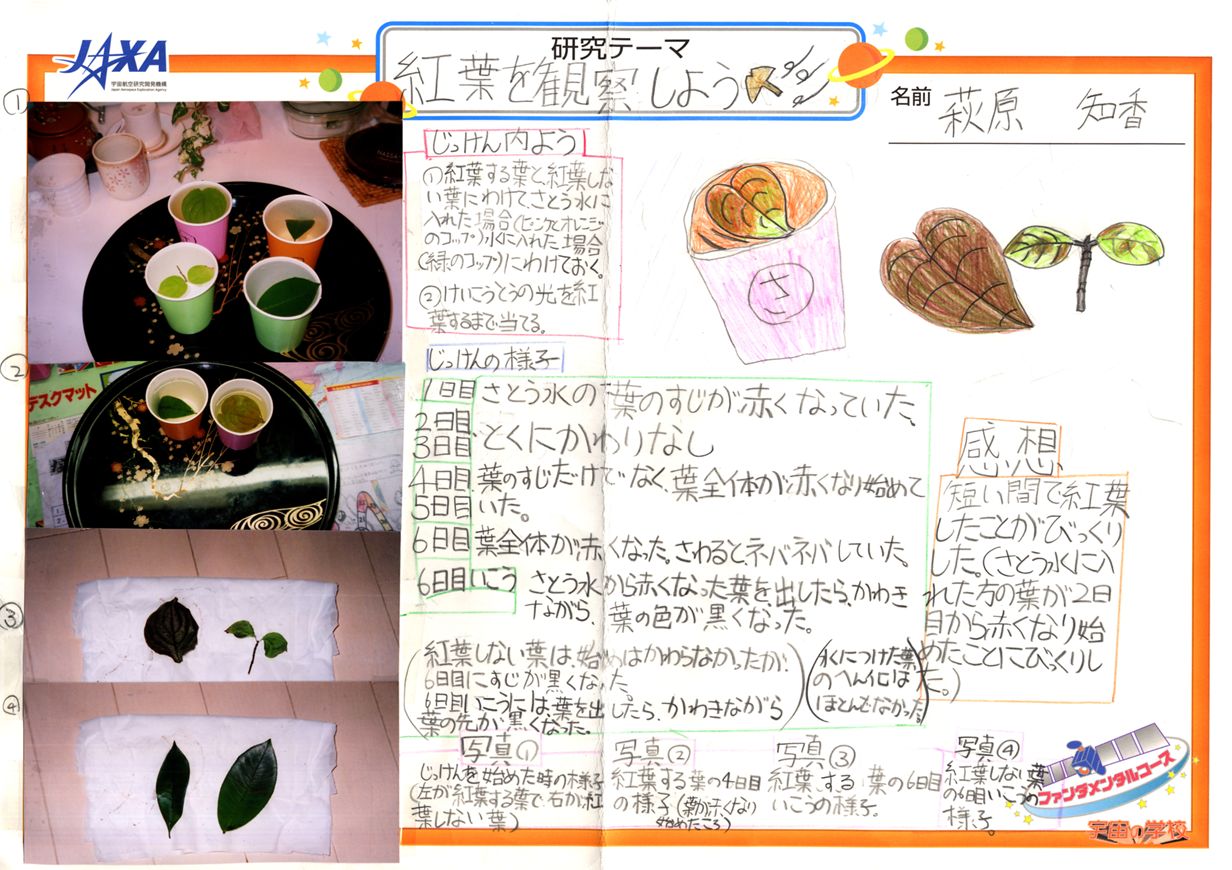 JAXA
宇宙航空研究開発機構
Japan Aerospace Exploration Agency
研究テーマ
紅葉を観察しよう
名前 萩原 知香
①
②
デスクマット
③
④
じっけん内よう
①紅葉する葉と、紅葉しな
い葉にわけて、さとう水に
入れた場合(ピンクとオレンジ
のコップ)水に入れた場合
(緑のコップ)にわけておく。
②けいこうとうの光を紅
葉するまで当てる。
さ
じっけんの様子
1日目 さとう水の葉のすじが赤くなっていた。
2日目
3日目 とくにかわりなし
4日目 葉のすじだけでなく、葉全体が赤くなり始めて
5日目 いた。
6日目 葉全体が赤くなった。さわるとネバネバしていた。
6日目いこう さとう水から赤くなった葉を出したら、かわき
ながら、葉の色が黒くなった。
(紅葉しない葉は、始めはかわらなかったが、
6日目にすじが黒くなった。
6日目いこうには葉を出したら、かわきながら
葉の先が黒くなった。)
(水につけた葉
のへん化は
ほとんどなかった)
感想
短い間で紅葉
したことがびっくり
した。(さとう水に入
れた方の葉が2日
目から赤くなり始
めたことにびっくりし
た。)
写真①
じっけんを始めた時の様子
(左が紅葉する葉で、右が紅
葉しない葉)
写真②
紅葉する葉の4日目
の様子(葉が赤くなり
始めたころ)
写真③
紅葉する葉の6日目
いこうの様子。
写真④
紅葉しない葉
の6日目いこうの
様子。
ファンダメンタルコース
宇宙の学校